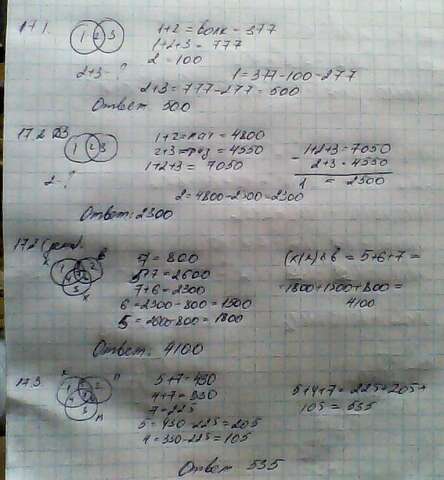 17 1.
1 2 3
1+2 = волк - 377
1+2+3 = 777
2 = 100
2+3 - ?
1 = 377 - 100 - 277
2+3 = 777 - 277 = 500
Ответ 500
17 2
1 2 3
1+2 = = 4800
2+3 = = 4550
1+2+3 = 7050
2 - ?
- 1+2+3 = 7050
2+3 = 4550
1 = 2500
2 = 4800 - 2500 = 2300
Ответ: 2300
17.2
7 = 800
5+7 = 2600
7+6 = 2300
6 = 2300 - 800 = 1500
5 = 2600 - 800 = 1800
= 5+6+7 =
= 1800 + 1500 + 800 =
4100
Ответ: 4100
17 3.
5+7 = 430
4+7 = 330
7 = 225
5 = 430 - 225 = 205
4 = 330 - 225 = 105
5+4+7 = 225 + 205 +
105 = 535
Ответ 535